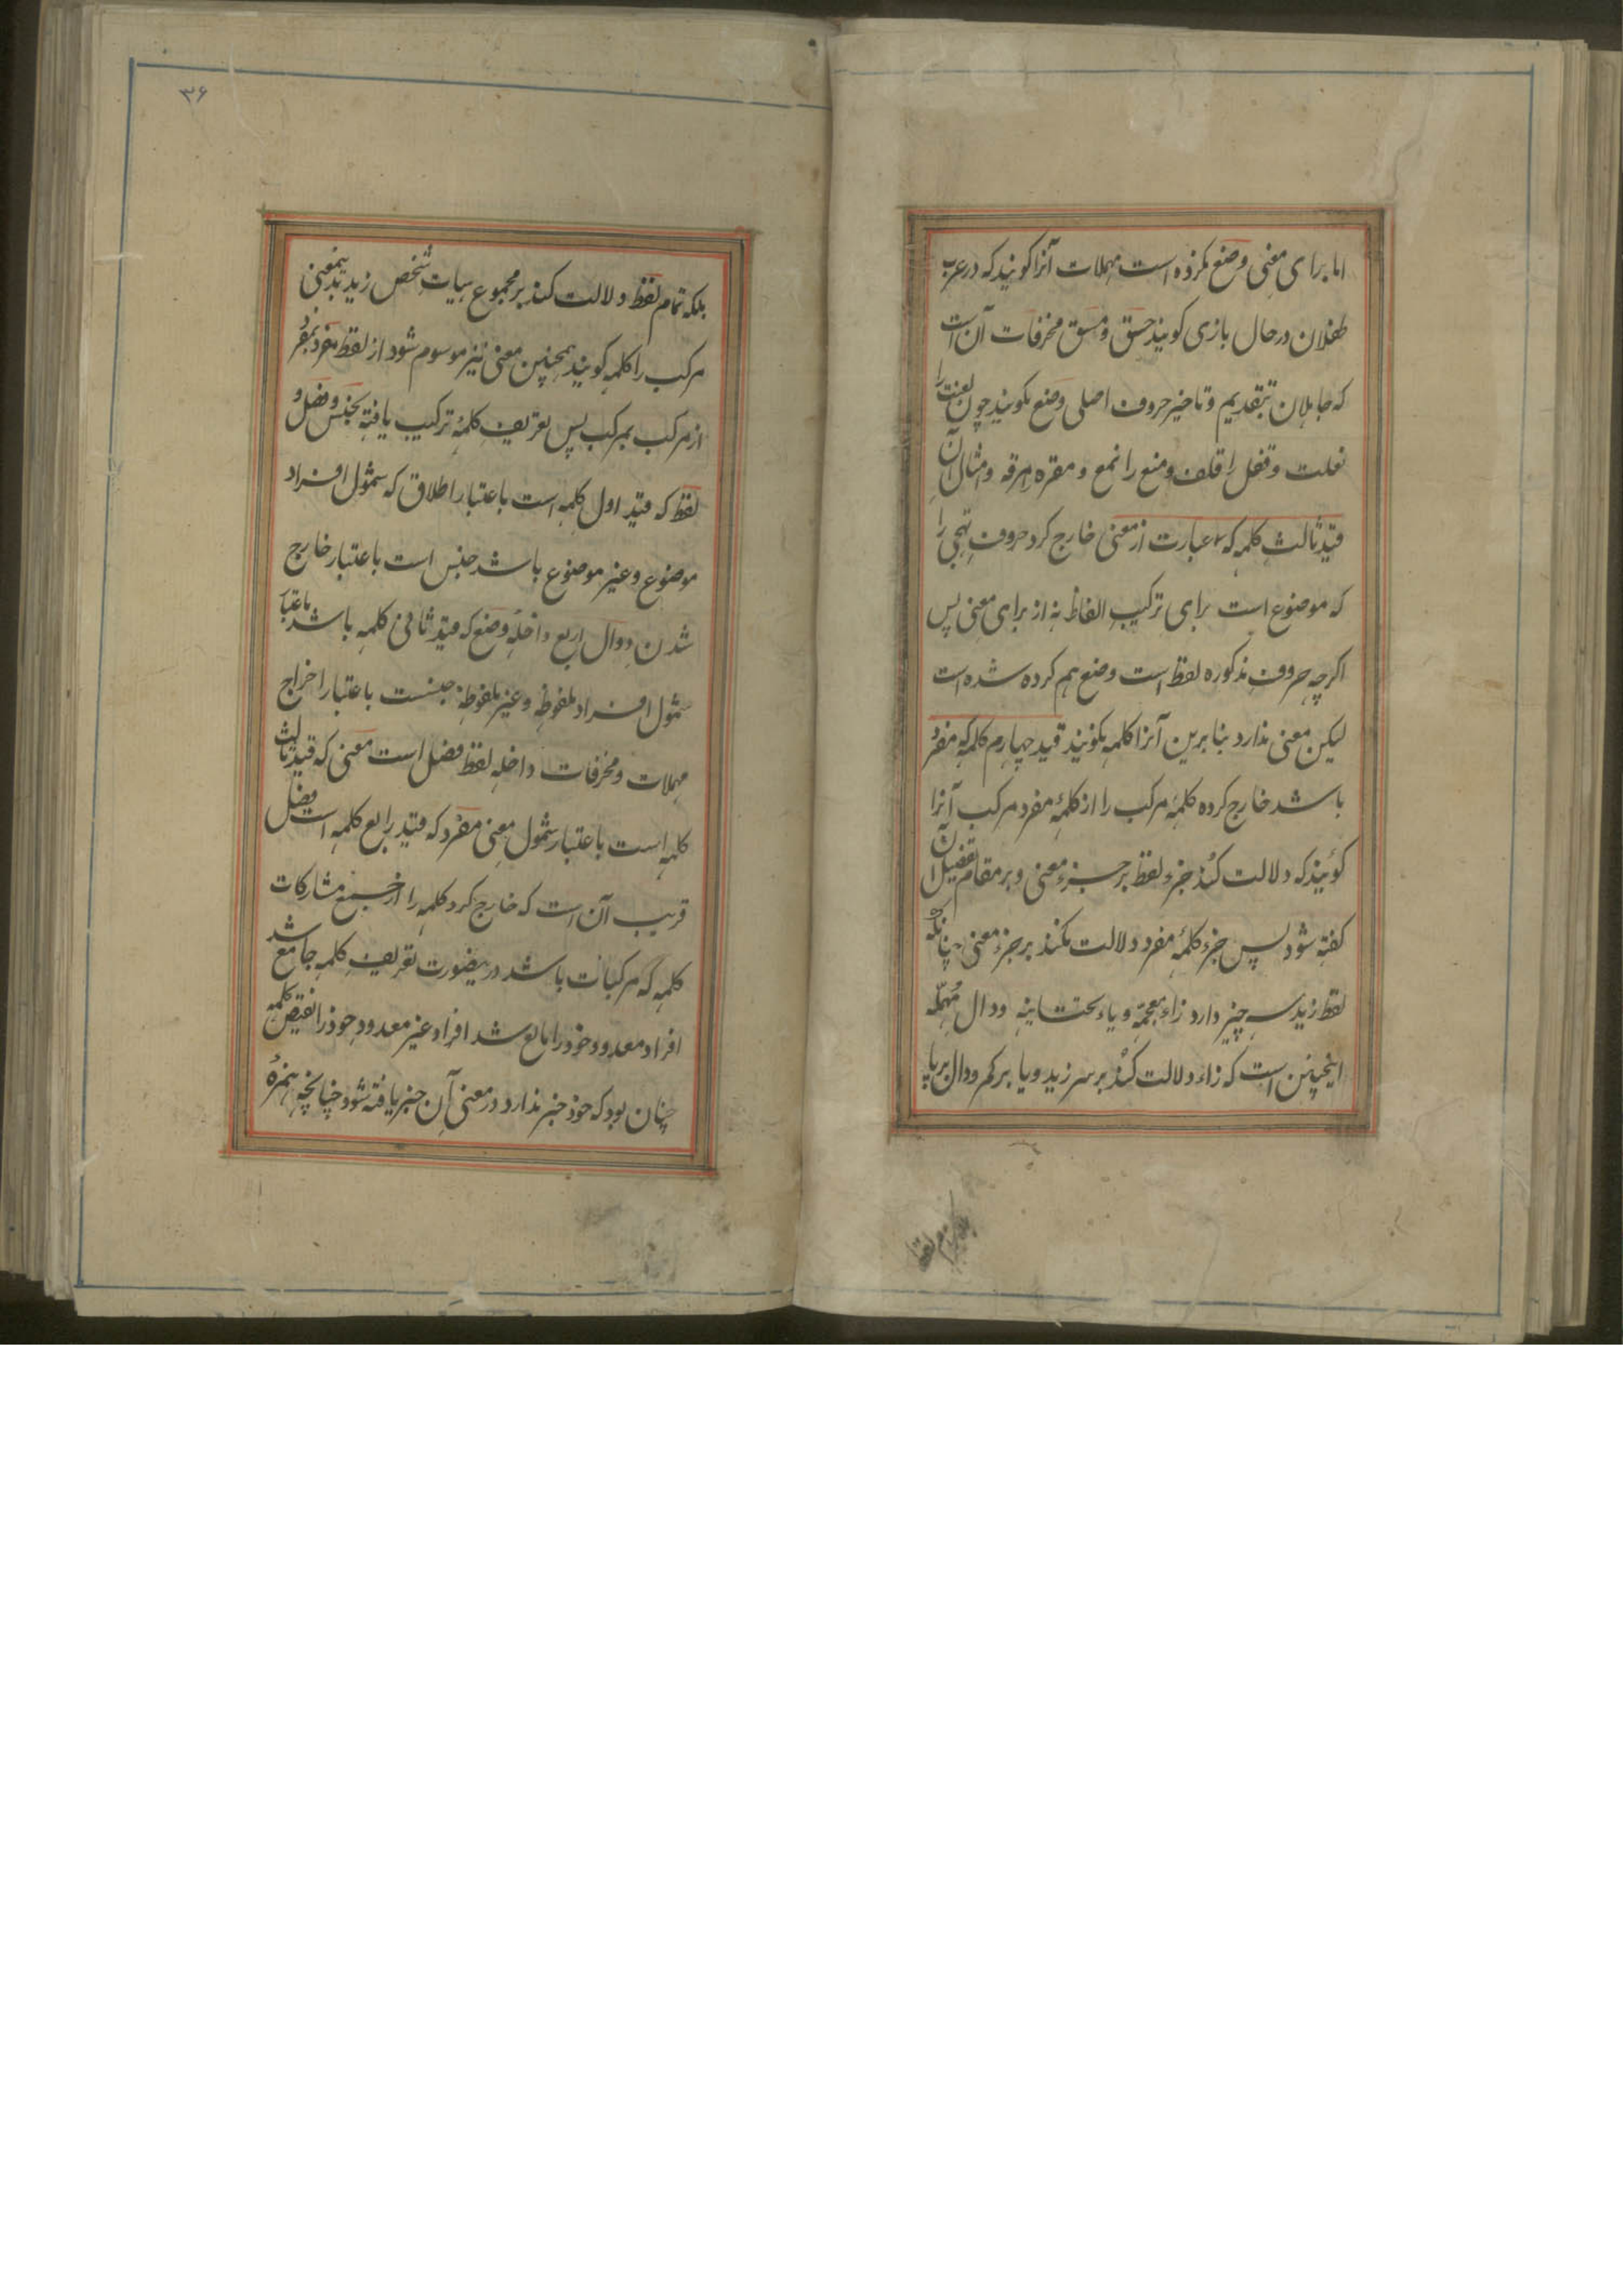 اما برای معنی وضع نکرده است مهملات آنرا کویند که در عرب
طفلان در حال بازی کویند حسق و مسق محرفات آن است
که جاهلان بتقدیم و تاخیر حروف اصلی وضع بکویند چون لعنت را
نعلت و قفل را قلف و منع را نمع و مقره مرقه و امثال آن
قید ثالث کلمه که عبارت از معنی خارج کرد حروف تهجی را
که موضوع است برای ترکیب الفاظ نه از برای معنی پس
اکرچه حروف مذکوره لفظ است وضع هم کرده شده است
لیکن معنی ندارد بنابرین آنرا کلمه نکویند قید چهارم کلمه که مفرد
باشد خارج کرده کلمهٔ مرکب را از کلمهٔ مفرد مرکب آنرا
کویند که دلالت کند جزء لفظ بر جزء معنی و بر مقام تفصیل آن
کفته شود پس جزء کلمهٔ مفرد دلالت نکند بر جزء معنی چنانکه
لفظ زید سه چیز دارد زاء معجمه و یاء تحتانیه و دال مهمله
اینچنین است که زاء دلالت کند بر سر زید و یا بر کمر و دال بر پا
بلکه تمام لفظ
۳۶
بلکه تمام لفظ دلالت کند بر مجموع هیات شخص زید بدینمعنی
مرکب را کلمه کویند همچنین معنی نیز موسوم شود از لفظ مفرد بمفرد
از مرکب بمرکب پس تعریف کلمهٔ ترکیب یافته بجنس و فصل و
لفظ که قید اول کلمه است باعتبار اطلاق که شمول افراد
موضوع و غیر موضوع باشد جنس است باعتبار خارج
شدن دوال اربع داخله وضع که قید ثانی کلمه باشد باعتبار
شمول افراد ملفوظه و غیر ملفوظه جنست باعتبار اخراج
مهملات و محرفات داخله لفظ فصل است معنی که قید ثالث
کلمه است باعتبار شمول معنی مفرد که قید رابع کلمه است فصل
قریب آن است که خارج کرد کلمه را از جمیع مشارکات
کلمه که مرکبات باشد درینصورت تعریف کلمه جامع شد
افراد معدود خود را مانع شد افراد غیر معدود خود را نقیض کلمه
چنان بود که خود جنر ندارد در معنی آن جنر یافته شود چنانچه همزهٔ